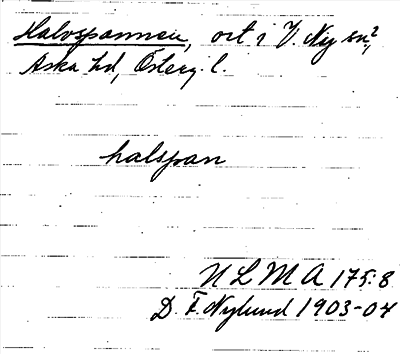 Halvspannen, ort i V. Ny sn?,
Aska hd, Österg. l.
halspan
N L M A 175:8
D. F. Nylund 1903-04